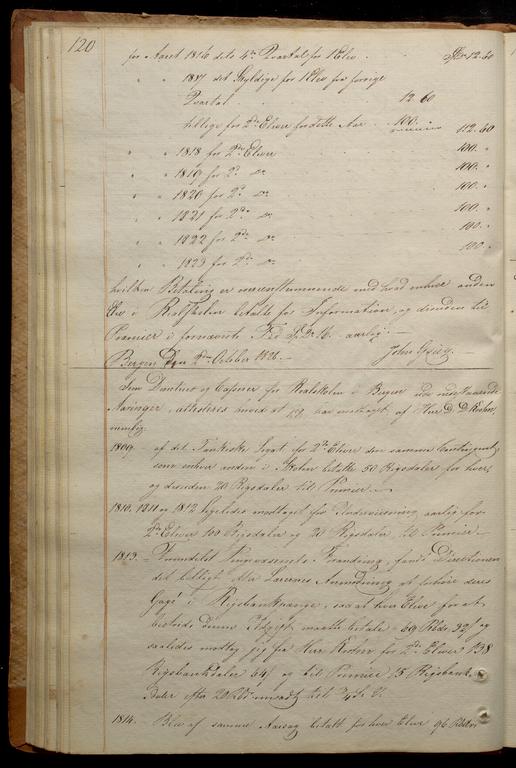 120
for Aaret 1816 dito 4de Qvartal for 1 Elev . . . Spdr 12. 60
" " 1817 det Skyldige for 1 Elev fra forrige
Qvartal . 12. 60
tillige for 2de Elever for dette Aar . 100. 112. 60
" " 1818 for 2de Elever 100. "
" " 1819 for 2de do 100. "
" " 1820 for 2de do 100. "
" " 1821 for 2de do 100. "
" " 1822 for 2de do 100. "
" " 1823 for 2de do 100. "
hvilken Betaling er overeensstemmende med hvad enhver anden
Elev i Realskolen betalte for Information, og desuden til
Præmier i fornævnte Tid 16 aarlig. —
Bergen den 2den October 1826. — John
Som Directeur og Casserer for Realskolen i Bergen udi nedenstaaende
Aaringer, attesteres hvad jeg har modtaget af Herr D. D. Krohn,
nemlig:
1809. — af det Tankske Legat for 2de Elever den samme Contingent
som enhver anden i Skolen betalte 50 Rigsdaler for hver,
og desuden 20 Rigsdaler til Præmier. —
1810, 1811 og 1812 ligeledes modtaget for Underviisning aarlig for
2de Elever 100 Rigsdaler og 20 Rigsdaler til Præmier —
1813. — Formedelst Pengevæsenets Forandring, fandt Directionen
det billigt Lærernes Anmodning at beholde deres
Gage i Rigsbankpenge, saa at hver Elev for at
bestride denne Udgift maatte betale 69 Rbdr 32 og
saaledes modtog jeg fra Herr Krohn for 2de Elever 138
Rigsbankdaler 64 og til Præmier 15 Rigsbank-
daler efter 20 Rdr
1814. Blev af samme Aarsag betalt for hver Elev 96 Rbdlr